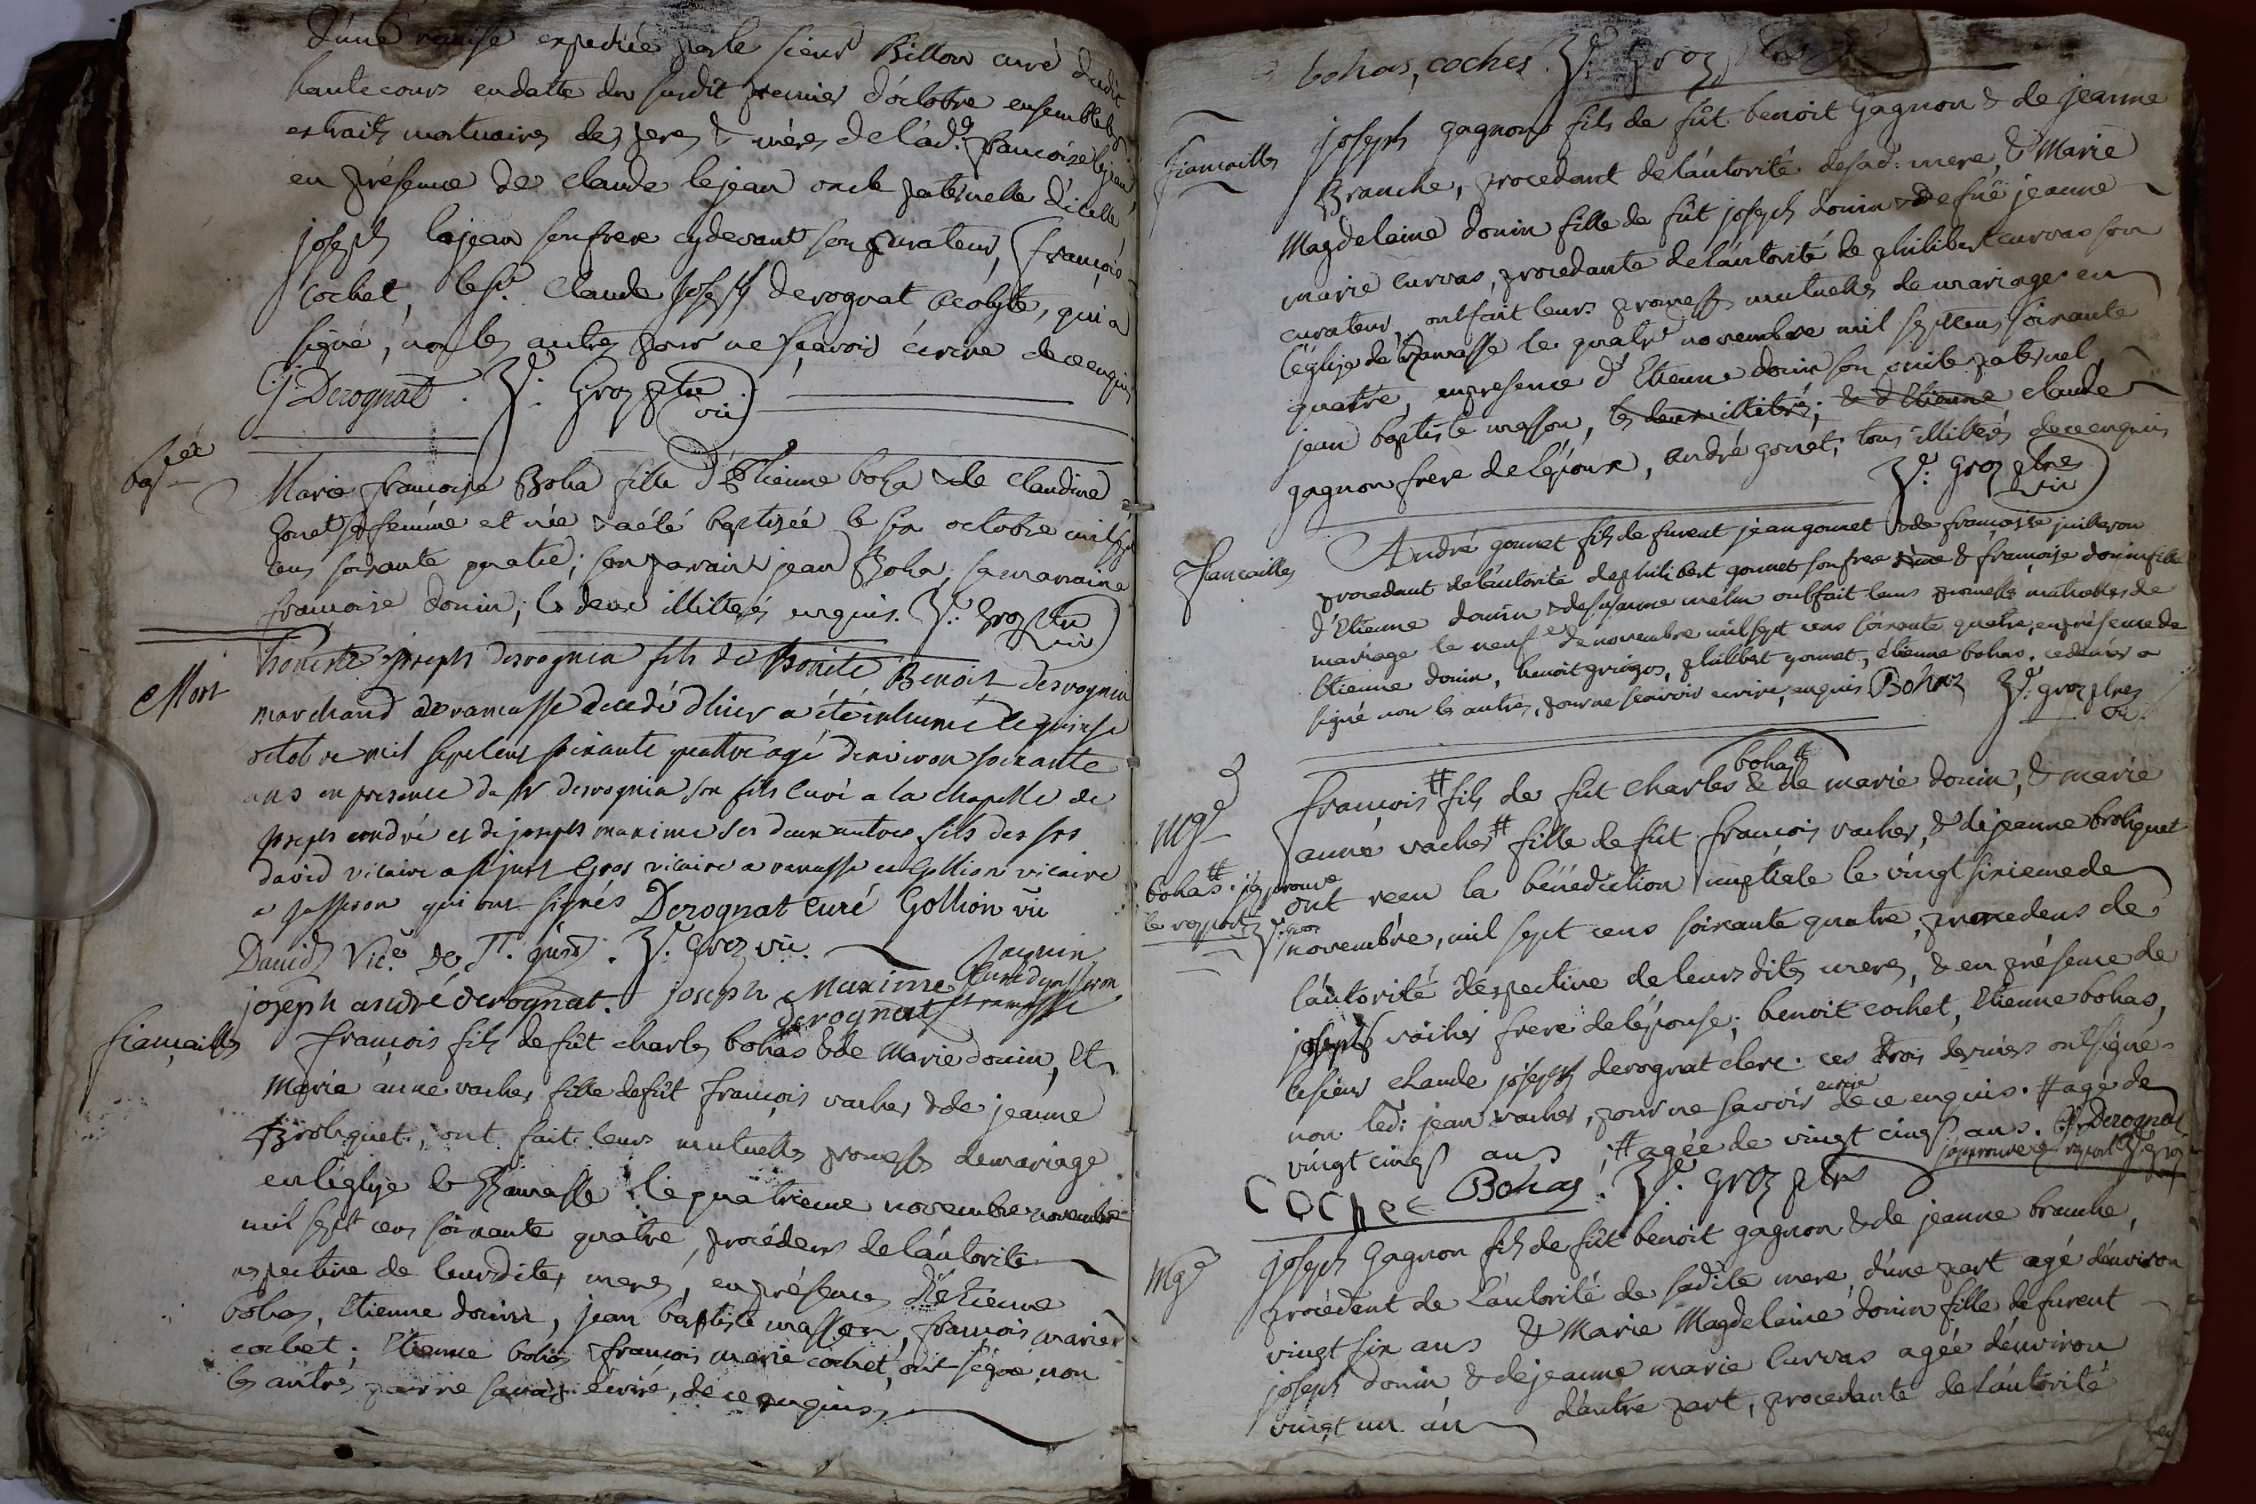 d'une remise expediée par le sieur Billon curé dudit
hautecours en datte du susdit premier d'octobre ensemble les
extraits mortuaires des peres & mères de lad: françoise lejean
en présence de claude lejean oncle paternelle d'icelle
joseph lejean son frere cydevant son curateur, françois
cochet, le sr. claude joseph derognat acolyte, qui a
signé, non les autres pour ne sçavoir écrire de ce enquis
C: j: Derognat. Groz ptre
vic
Marie françoise Boha fille d'Etienne boha & de claudine
gonet sa femme et née & a été baptisée le six octobre mil sept
cens soixante quatre; son parain jean Boha, sa maraine
francoise donin; les deux illitterés enquis. Groz ptre
vic
Mort
honnete joseph desrognia fils de honnete Benoit desrognia
marchand de ramasse decedé d'hier a été inhumé le quinse
octobre mil sept cens soixante quattre agé d'environ soixante
ans en presence du sr desrognia son fils curé a la chapelle de
joseph andré et de joseph maxime ses deux autres fils des srs
david vicaire a st just Gros vicaire a ramasse et Gollion vicaire
a jasseron qui ont signés Derognat curé Gollion vic
David Vic.e de St. just. Groz vic.
joseph andré derognat. joseph Maxime
derognat
fiançailles
françois fils de fût charles bohas & de Marie donin, et
Marie anne vacher fille de fût françois vacher & de jeanne
Brohquet, ont fait leurs mutuelles promesses de mariage
en l'église de Ramasse le quatrieme novembre novembre
mil sept cens soixante quatre, procédens de l'autorité
respective de leursdites meres, en présence d'étienne
bohas, Etienne donin, jean baptiste masson, françois marie
cochet; Etienne bohas & françois marie cochet, ont signé non
les autres pour ne savoir écrire, de ce enquis
bohas, cochet. Groz
fiançailles
joseph gagnon fils de fût benoit Gagnon & de jeanne
Branche, procedant de l'autorité de sad: mere, & Marie
Magdelaine donin fille de fût joseph donin & de fuë jeanne
marie curvas, procedante de l'autorité de philibert curvas son
curateur, ont fait leurs promesses mutuelles de mariage en
l'église de Ramasse le quatre novembre mil sept cens soixante
quatre, en presence d'Etienne donin son oncle paternel,
jean baptiste masson, les deux illitérés; & d'Etienne claude
gagnon frere de l'époux, andré gonet; tous illiterés de ce enquis
Groz ptre
vic
fiançailles
André gonnet fils de furent jean gonnet & de françoise juilleron
procedant de l'autorité de philibert gonnet son frere & françoise donin fille
d'Etienne donin & de susanne melin ont fait leurs promesses mutuelles de
mariage le neuf de novembre mil sept cens soixante quatre, en présence de
Etienne donin, benoit gringos, philibert gonnet, étienne bohas. ce dernier a
signé non les autres, pour ne sçavoir ecrire, enquis Bohas groz ptre
vic
mge
bohas#
françois # fils de fût charles & de marie donin, & marie
anne vacher # fille de fût françois vacher, & de jeanne brohquet
bohas#. j'approuve
le renvoy
ont recu la bénédiction nuptiale le vingt sixieme de
novembre, mil sept cens soixante quatre, procedens de
l'autorité respective de leurs dites meres, & en présence de
joseph vacher frere de l'épouse; benoit cochet, Etienne bohas,
le sieur claude joseph derognat clerc. ces trois derniers ont signé
non led: jean vacher, pour ne savoir ecrire de ce enquis. # agé de
vingt cinq ans, # agée de vingt cinq ans. Derognat
Cochet Bohas. groz ptre
mge
joseph Gagnon fils de fût benoit gagnon & de jeanne branche,
procédent de l'autorité de sadite mere, d'une part agé d'environ
vingt six ans & Marie Magdelaine donin fille de furent
joseph donin & de jeanne marie curvas agée d'environ
vingt un an d'autre part, procedante de l'autorité